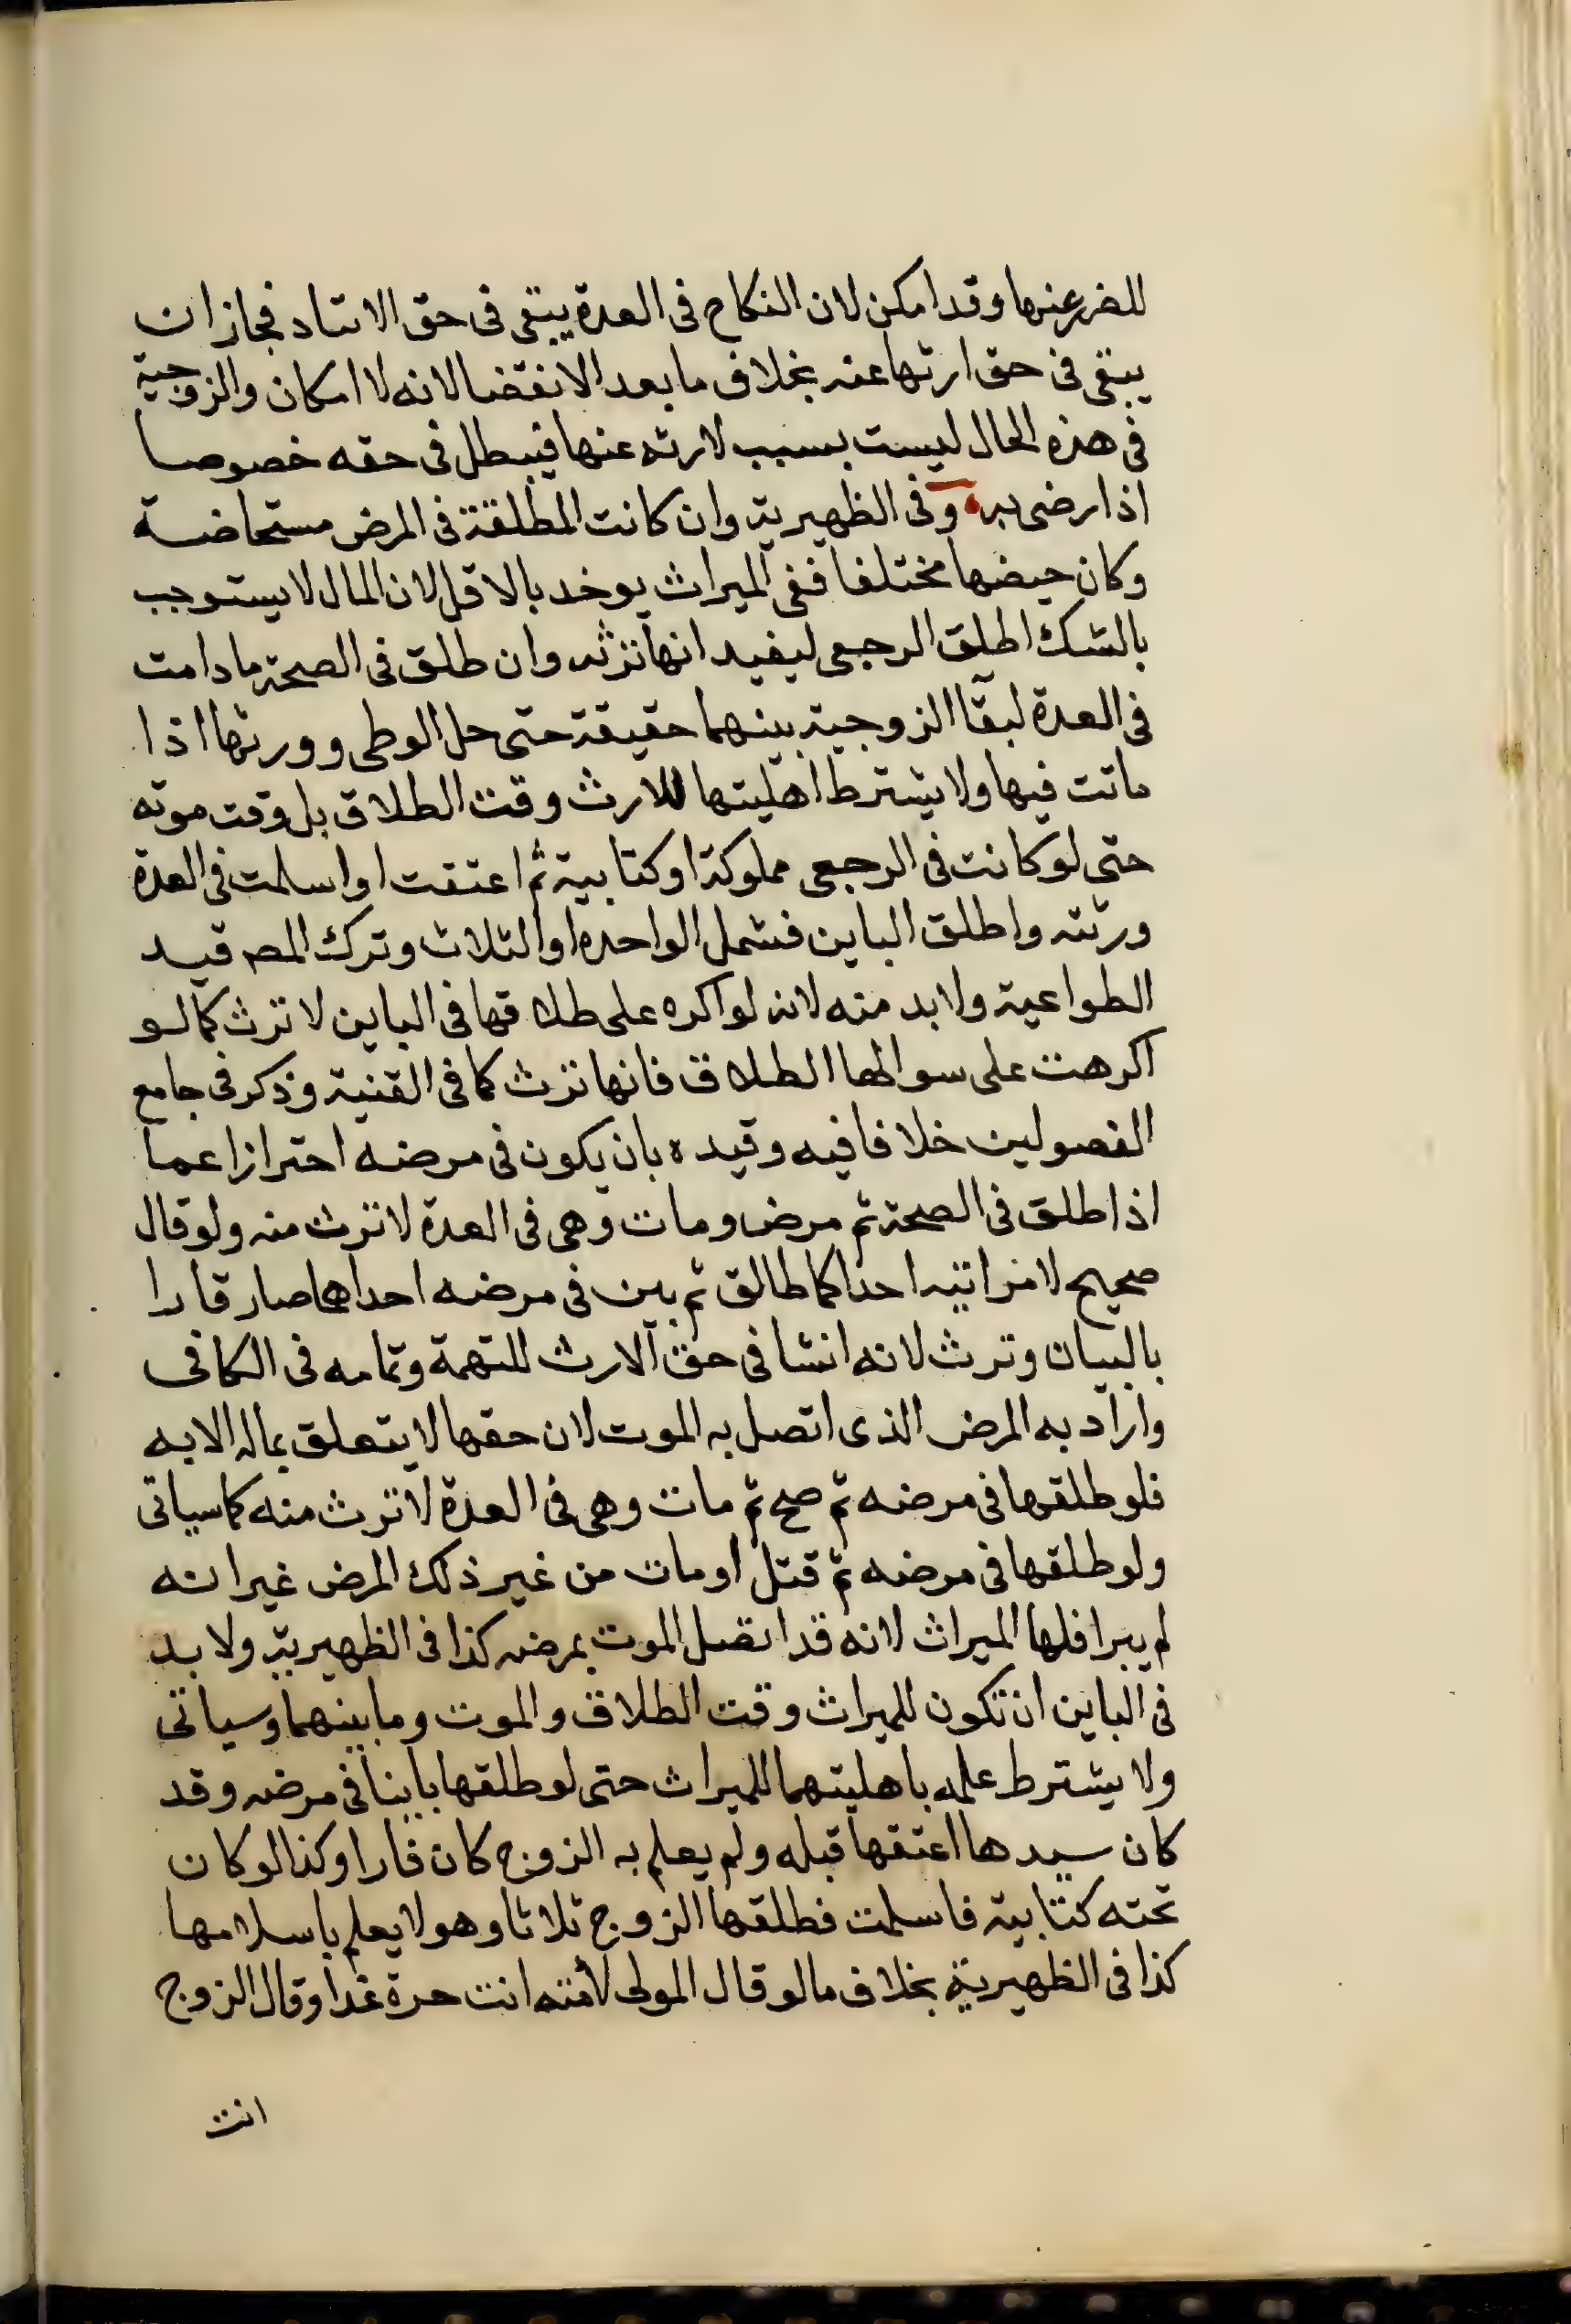 للضرر عنها وقد امكن لان النكاح فى العدة يبقى فى حق الاثار فجاز ان
يبقى فى حق ارثها عنه بخلاف ما بعد الانقضا لانه لا امكان والزوجية
فى هذه الحال ليست بسبب لارثه عنها فيبطل فى حقه خصوصا
اذا رضى به وفى الظهيرية وان كانت المطلقة فى المرض مستحاضة
وكان حيضها مختلفا ففى الميراث يوخد بالاقل لان المال لا يستوجب
بالشك اطلق الرجعى ليفيد انها ترثه وان طلق فى الصحة ما دامت
فى العدة لبقا الزوجية بينهما حقيقة حتى حل الوطى وورثها اذا
ماتت فيها ولا يشترط اهليتها للارث وقت الطلاق بل وقت موته
حتى لو كانت فى الرجعى مملوكة او كتابية ثم اعتقت او اسلمت فى العدة
ورثته واطلق الباين فشمل الواحدة او الثلاث وترك المص قيد
الطواعية ولا بد منه لانه لو اكره على طلاقها فى الباين لا ترث كما لو
اكرهت على سوالها الطلاق فانها ترث كما فى القنية وذكر فى جامع
الفصولين خلافا فيه وقيده بان يكون فى مرضه احترازا عما
اذا طلق فى الصحة ثم مرض ومات وهى فى العدة لا ترث منه ولو قال
صحيح لامراتيه احداكما طالق ثم بين فى مرضه احداهما صار فارا
بالبيان وترث لانه انشا فى حق الارث للتهمة وتمامه فى الكافى
واراد به المرض الذى اتصل به الموت لان حقها لا يتعلق بماله الا به
فلو طلقها فى مرضه ثم صح ثم مات وهى فى العدة لا ترث منه كما سياتى
ولو طلقها فى مرضه ثم قتل او مات من غير ذلك المرض غير انه
لم يبرا فلها الميراث لانه قد اتصل الموت بمرضه كذا فى الظهيرية ولا بد
فى الباين ان تكون للميراث وقت الطلاق والموت وما بينهما وسياتى
ولا يشترط علمه باهليتهما للميراث حتى لو طلقها باينا فى مرضه وقد
كان سيدها اعتقها قبله ولم يعلم به الزوج كان فارا وكذا لو كان
تحته كتابية فاسلمت فطلقها الزوج ثلاثا وهو لا يعلم باسلامها
كذا فى الظهيرية بخلاف ما لو قال المولى لأمته انت حرة غدا وقال الزوج
انت